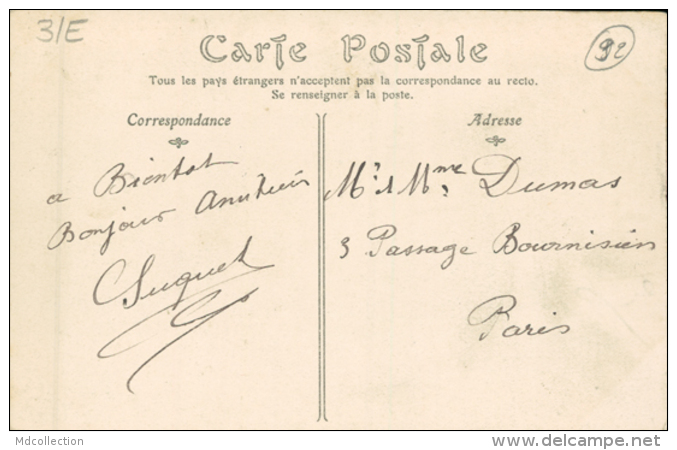 3/E
92
Carte Postale
Tous les pays étrangers n'acceptent pas la correspondance au recto.
Se renseigner à la poste.
Correspondance
a Bientot
Bonjour
Suquet
Adresse
Mr. & Mme Dumas
3 Passage Bournisien
Paris
Mdcollection
www.delcampe.net